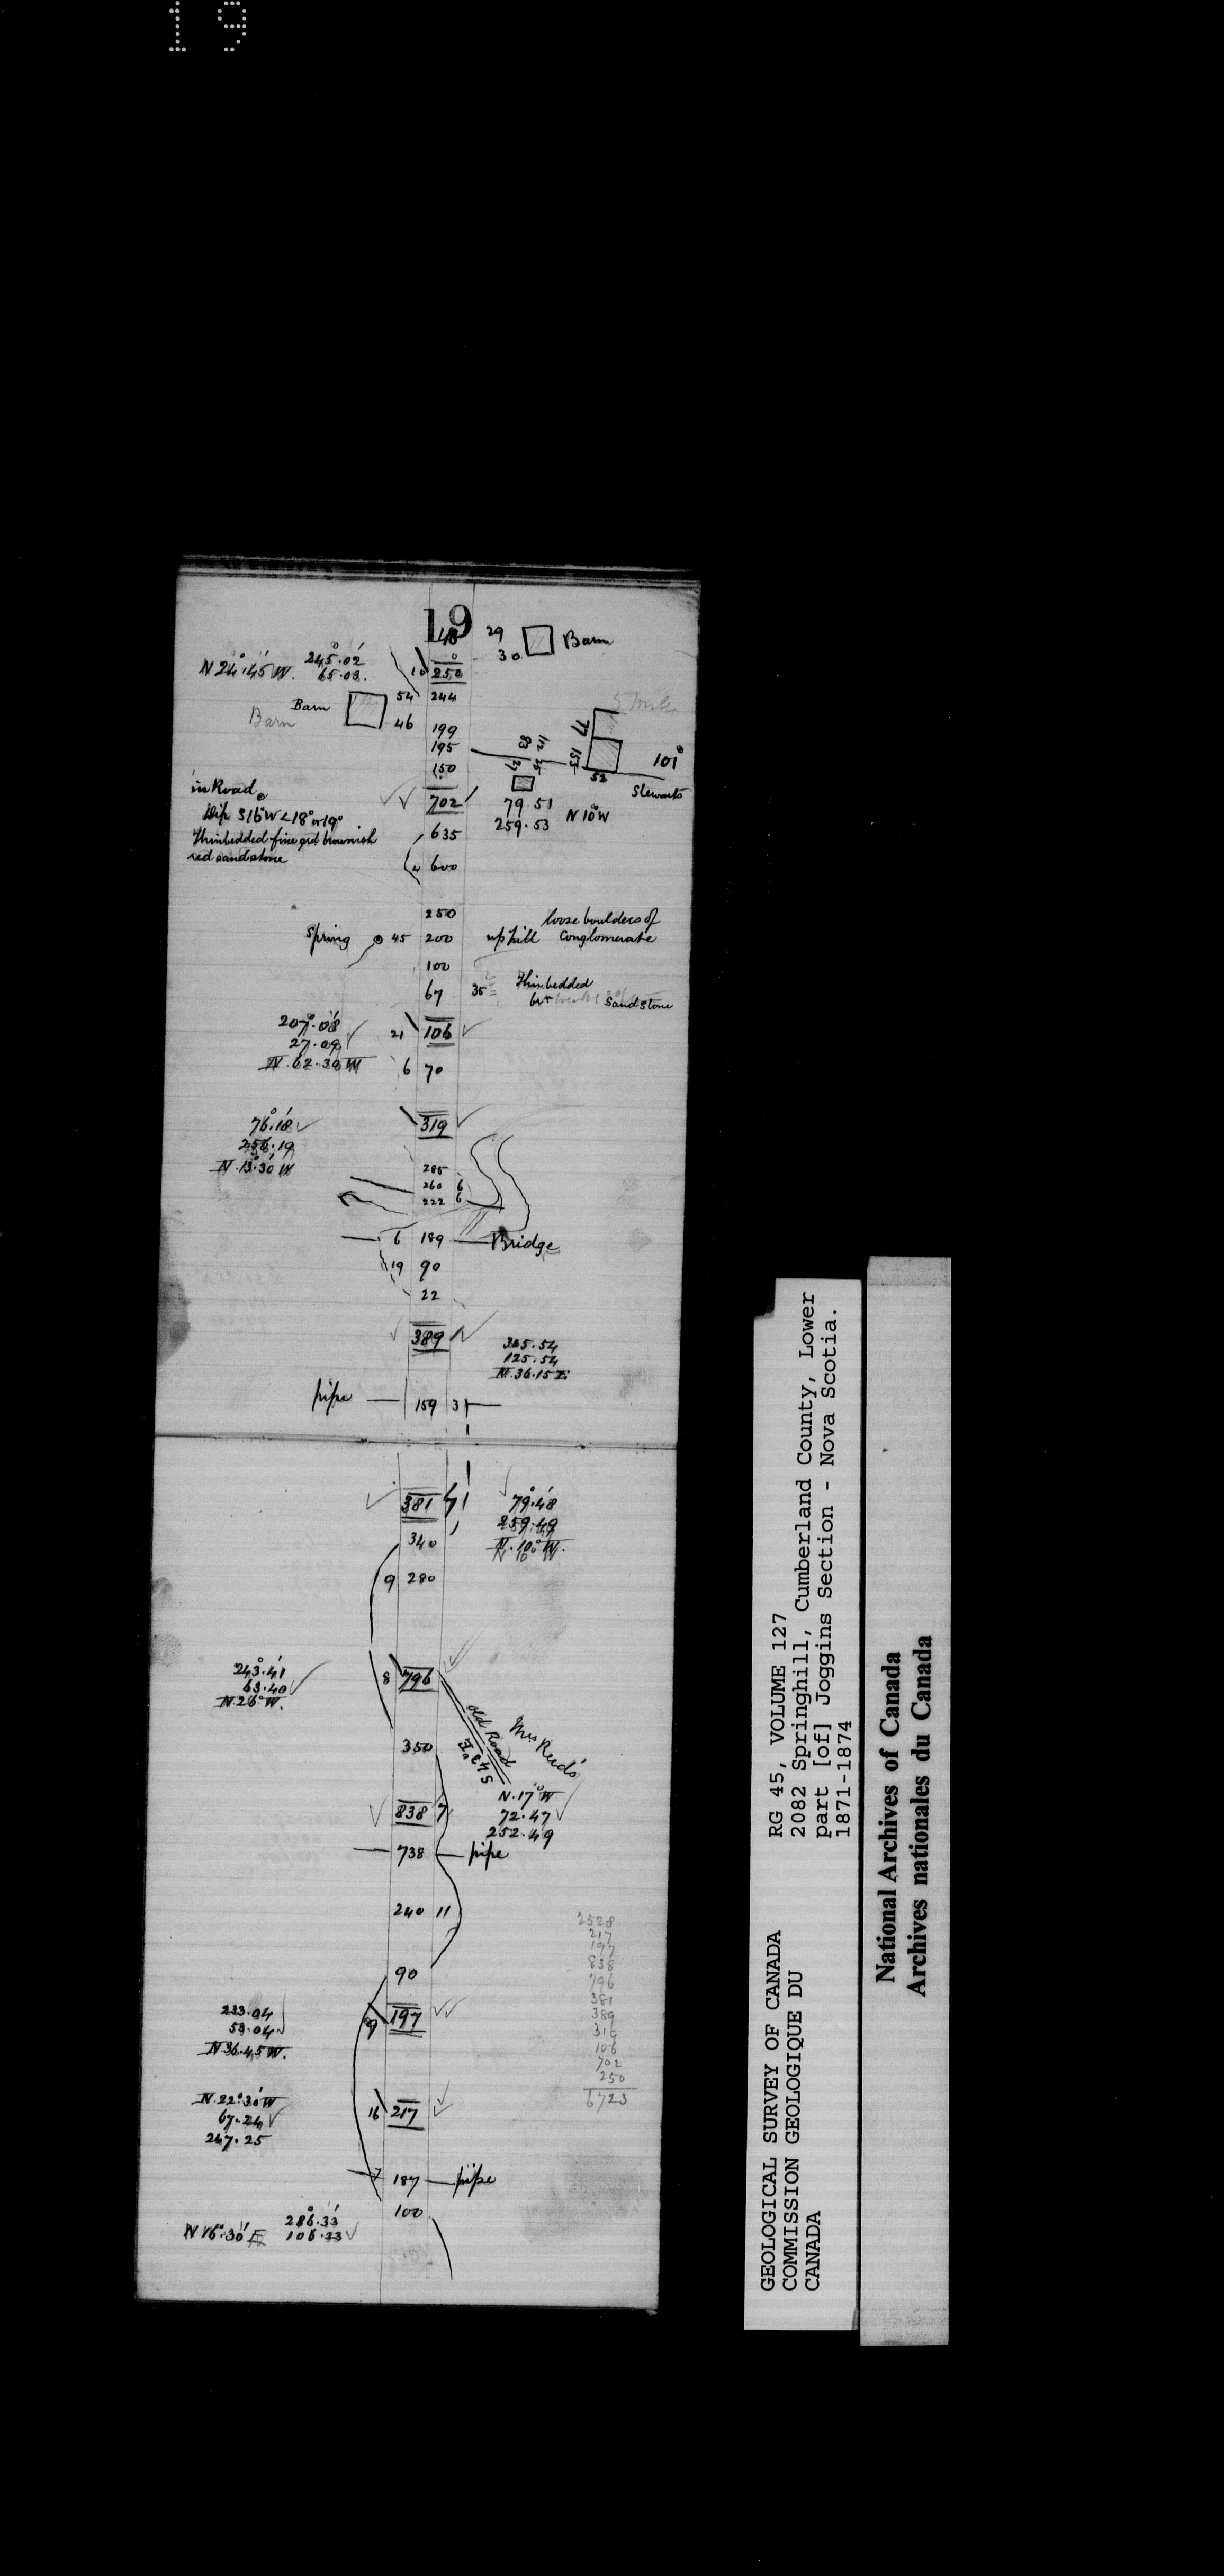 19
19
48 29 Barn
30
N 24°.45' W. 245°.02' 10 250
65.03.
54 244
Barn
Barn 46 199
195
150
77
153
52
83
112
27
25
101°
Stewarts
in Road
Dip S16°W <18° or 19°
Thinbedded fine grd brownish
red sandstone
702 79.51 N 10° W
259.53
635
4 600
250 loose boulders of
Spring 45 200 up hill Conglomerate
100
67 35 Thinbedded
Sandstone
207°.08' 21 106
27.09
N.62.30 W 6 70
76°.18' 319
256.19
N.13°.30' W 285
260 6
222 6
6 189 Bridge
19 90
22
389 305.54
125.54
N.36.15 E
pipe 159 31
381 7 79°.48'
259.49
N.10° W.
N 10° W
340
9 280
243°.41' 8 796
63.40
N.26° W.
old Road
S 43° E
Mrs Reids
350
N.17° W
838 7 72.47
252.49
738 pipe
240 11
90
2528
217
197
838
796
381
389
316
106
702
250
6723
233.04 9 197
53.04
N36.45 W.
N.22°.30' W 16 217
67.24
247.25
7 187 pipe
100
286°.33'
N16°.30' E 106.33
GEOLOGICAL SURVEY OF CANADA
COMMISSION GEOLOGIQUE DU
CANADA
RG 45, VOLUME 127
2082 Springhill, Cumberland County, Lower
part [of] Joggins Section - Nova Scotia.
1871-1874
National Archives of Canada
Archives nationales du Canada